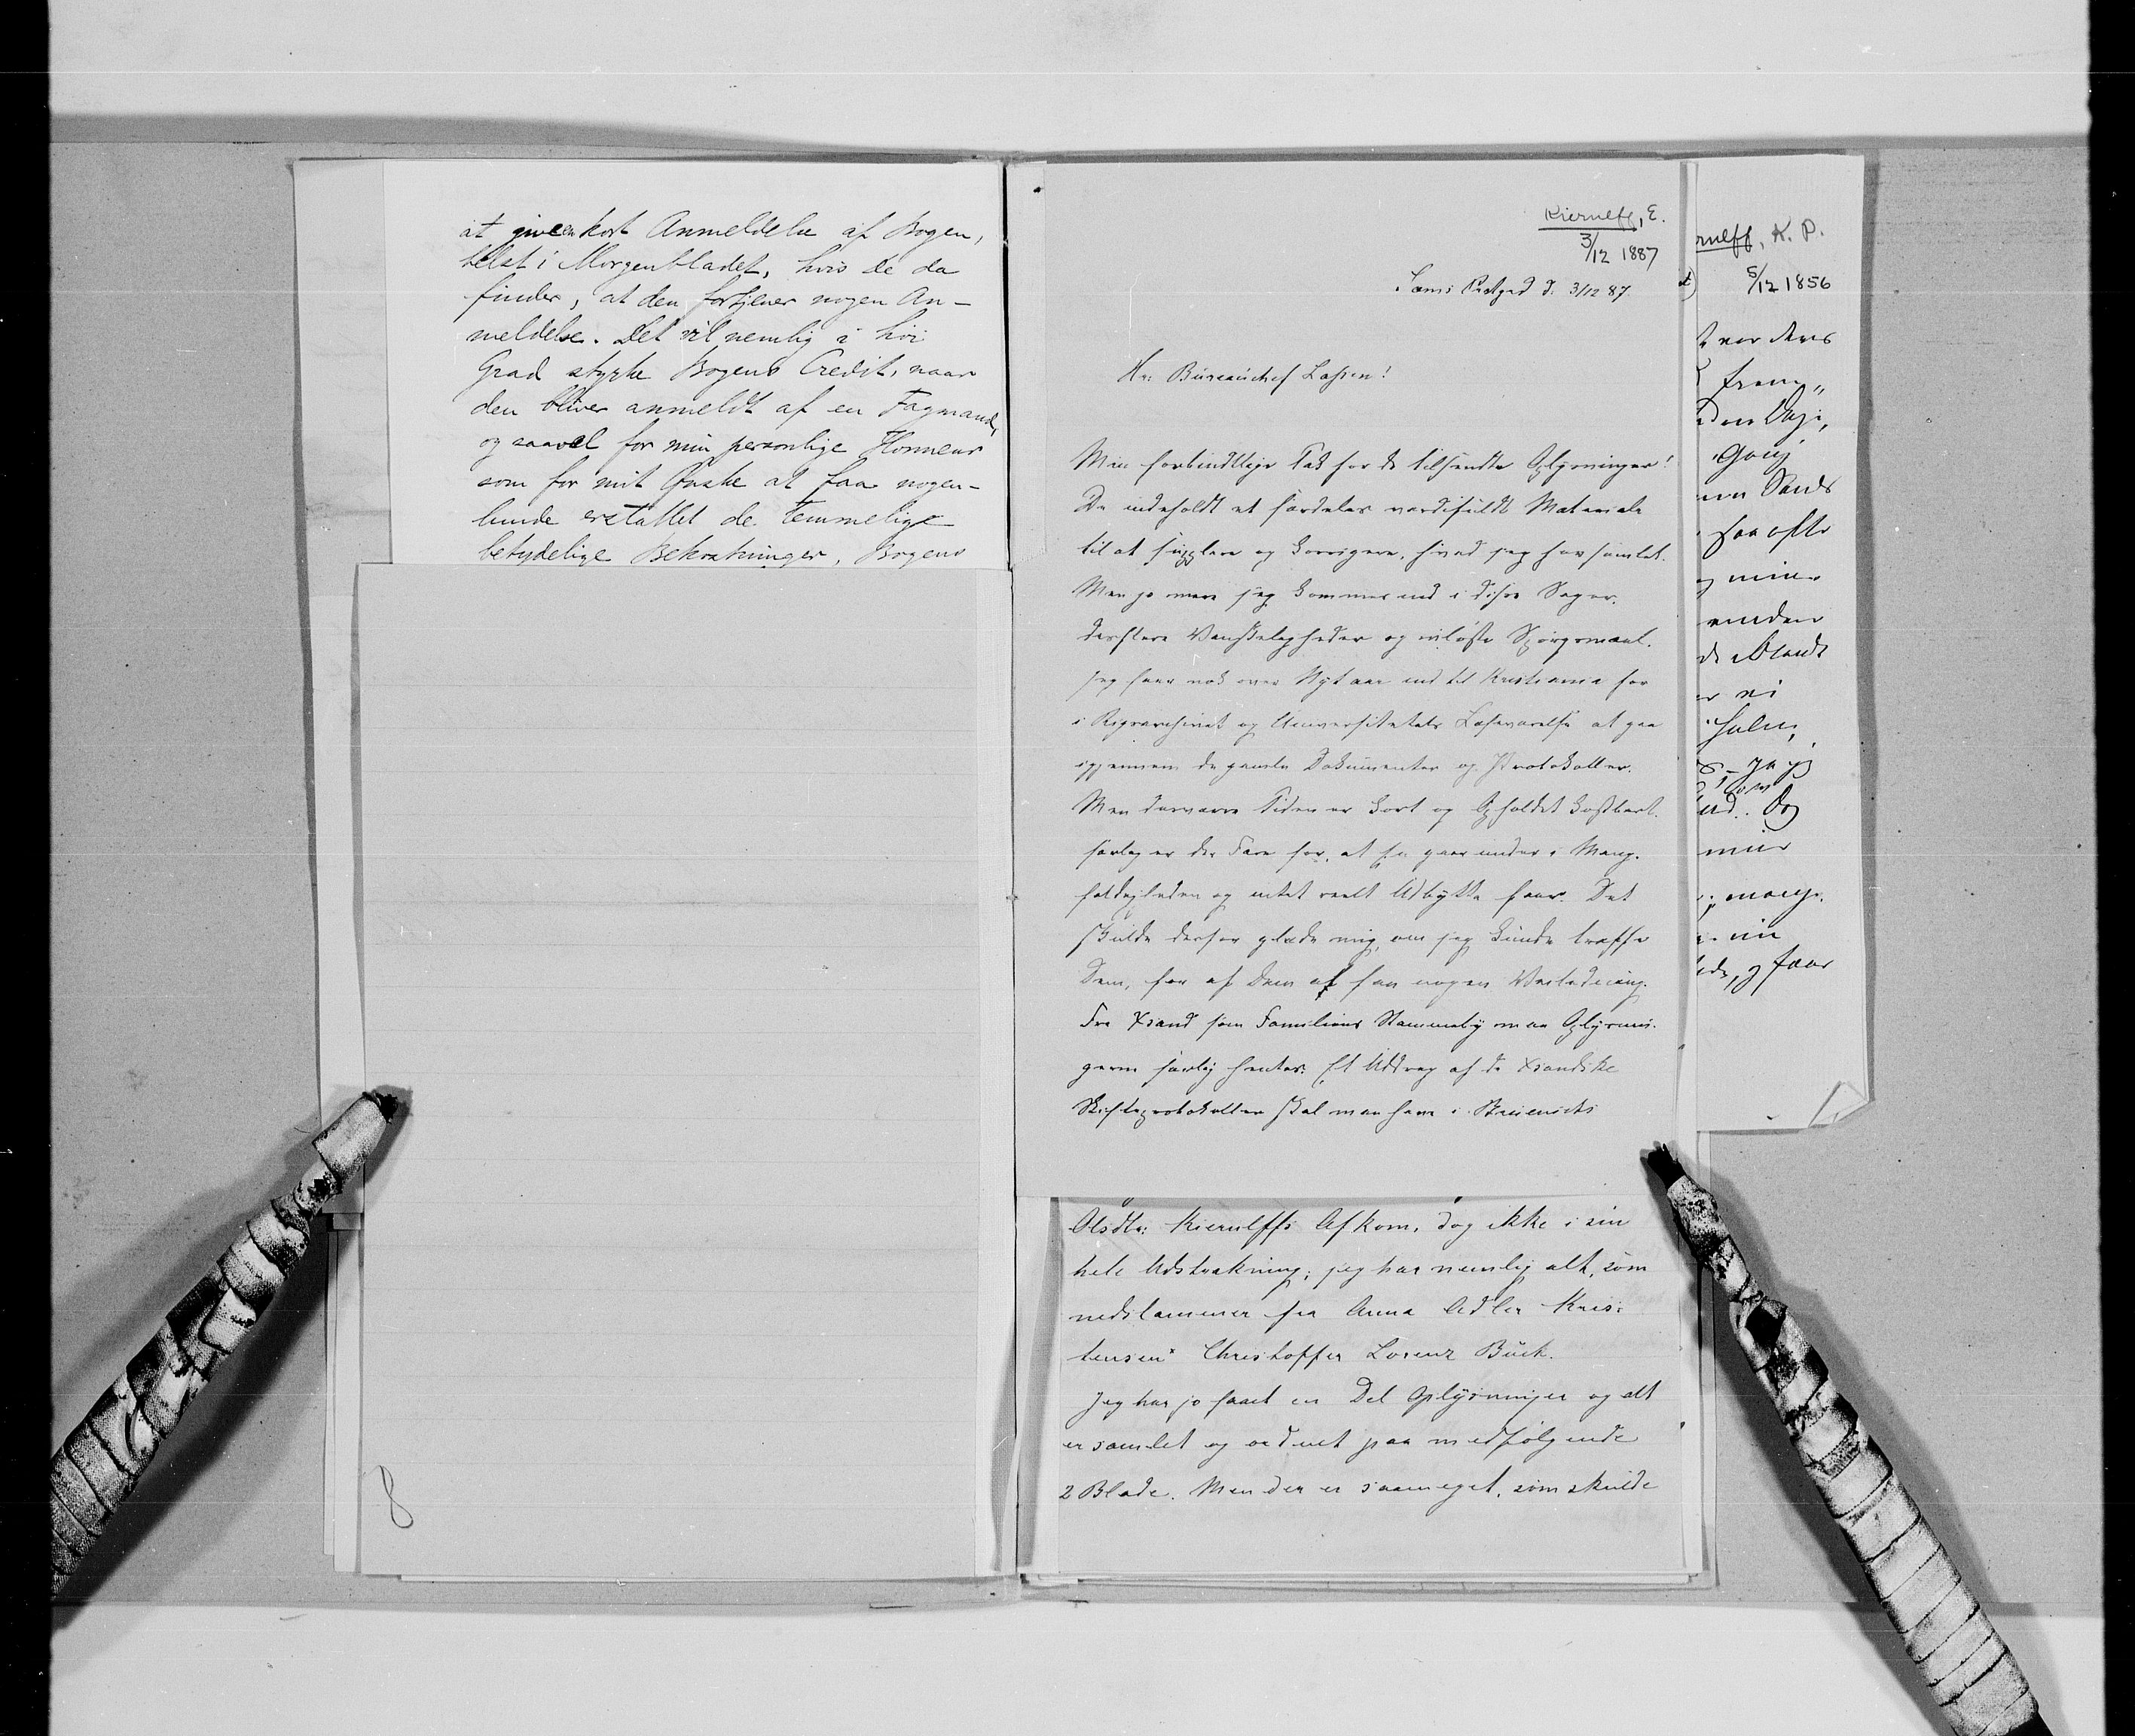 at give en kort Anmeldelse af Bogen,
helst i Morgenbladet, hvis De da
finder, at den fortjener nogen An-
meldelse. Det vil nemlig i høi
Grad styrke Bogens Credit, naar
den bliver anmeldt af en Fagmand,
og saavel for min personlige Honneur
som for mit Ønske at faa nogen-
lunde erstattet de temmelige
betydelige Bekostninger, Bogens
8
Kierulff, E.
3/12 1887
d. 3/12 87.
Hr. Bureauchef Lassen!
Min forbindtlige Tak for de tilsendte Oplysninger!
De indeholdt et særdeles værdifuldt Materiale
til at supplere og korrigere, hvad jeg har samlet.
Men jo mere jeg kommer ind i disse Sager,
des flere Vanskeligheder og uløste Spørgsmaal.
Jeg faar nok over Nytaar ind til Kristiania for
i Rigsarchivet og Universitetets Læseværelse at gaa
igjennem de gamle Dokumenter og Protokoller.
Men desværre Tiden er kort og Opholdet kostbart.
særlig er der Fare for, at en gaar under i Mang-
foldigheden og intet reelt Udbytte faar. Det
skulde derfor glæde mig, om jeg kunde træffe
Dem, for af Dem at faa nogen Veiledning.
Fra Xsand som Familiens Stammeby maa Oplysnin-
gerne særlig hentes. Et Uddrag af de Xsandske
Skifteprotokoller skal man have i
Olsdtr. Kierulffs Afkom, dog ikke i sin
hele Udstrækning; jeg har nemlig alt, som
nedstammer fra Anna Adler Kris-
tensen Christoffer Lorenz Buch.
Jeg har jo faaet en Del Oplysninger og alt
er samlet og ordnet paa medfølgende
2 Blade. Men der er saameget, som skulde
rulff, K. P.
5/12 1856
frem
Gang
saa ofte
min
er ei
ud. Og
min
mange
faar